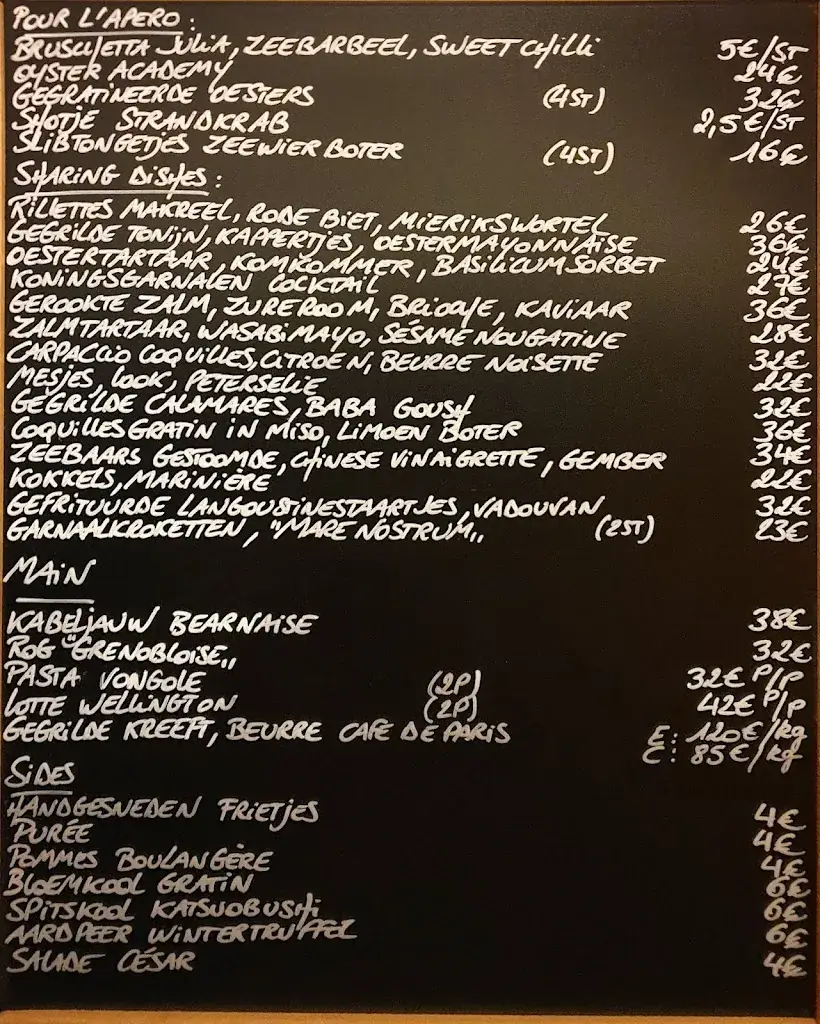 POUR L'APERO :
BRUSCHETTA JULIA, ZEEBARBEEL, SWEET CHILLI 5€/ST
OYSTER ACADEMY 24€
GEGRATINEERDE OESTERS (4ST) 32€
SHOTJE STRANDKRAB 2,5€/ST
SLIBTONGETJES ZEEWIER BOTER (4ST) 16€
SHARING DISHES :
RILLETTES MAKREEL, RODE BIET, MIERIKSWORTEL 26€
GEGRILDE TONIJN, KAPPERTJES, OESTERMAYONNAISE 36€
OESTERTARTAAR, KOMKOMMER, BASILICUM SORBET 24€
KONINGSGARNALEN COCKTAIL 27€
GEROOKTE ZALM, ZURE ROOM, BRIOCHE, KAVIAAR 36€
ZALMTARTAAR, WASABIMAYO, SÉSAME NOUGATINE 28€
CARPACCIO COQUILLES, CITROEN, BEURRE NOISETTE 32€
MESJES, LOOK, PETERSELIE 22€
GEGRILDE CALAMARES, BABA GOUSH 32€
COQUILLES GRATIN IN MISO, LIMOEN BOTER 36€
ZEEBAARS GESTOOMDE, CHINESE VINAIGRETTE, GEMBER 34€
KOKKELS, MARINIÈRE 22€
GEFRITUURDE LANGOUSTINESTAARTJES, VADOUVAN 32€
GARNAALKROKETTEN, "MARE NOSTRUM,, (2ST) 23€
MAIN
KABELJAUW BEARNAISE 38€
ROG "GRENOBLOISE,, 32€
PASTA VONGOLE (2P) 32€ P/P
LOTTE WELLINGTON (2P) 42€ P/P
GEGRILDE KREEFT, BEURRE CAFÉ DE PARIS E: 120€/kg
C: 85€/kg
SIDES
HANDGESNEDEN FRIETJES 4€
PURÉE 4€
POMMES BOULANGÈRE 4€
BLOEMKOOL GRATIN 6€
SPITSKOOL KATSUOBUSHI 6€
AARDPEER WINTERTRUFFEL 6€
SALADE CÉSAR 4€